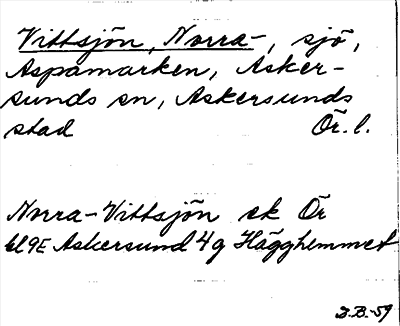 Vittsjön, Norra-, sjö,
Aspamarken, Asker-
sunds sn, Askersunds
stad Ör. l.
Norra-Vittsjön ek Ör
bl 9E Askersund 4g Hägghemmet
D.B.-59